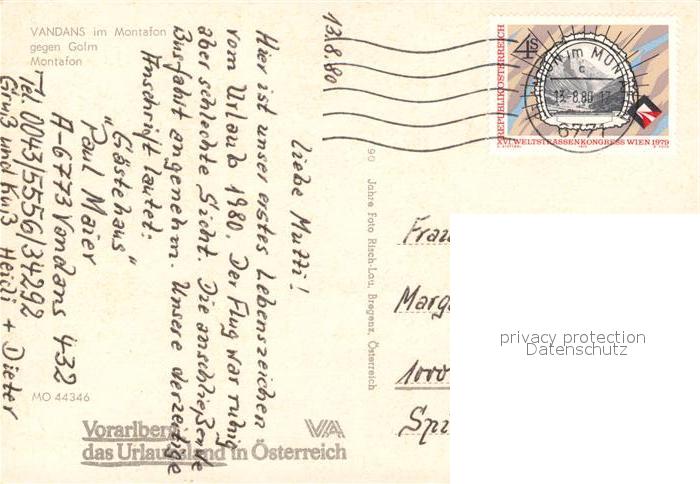 VANDANS im Montafon
gegen Golm
Montafon
13.8.80
Liebe Mutti!
Hier ist unser erstes Lebenszeichen
vom Urlaub 1980. Der Flug war ruhig
aber schlechte Sicht. Die anschließende
Busfahrt angenehm. Unsere derzeitige
Anschrift lautet:
"Gästehaus"
Paul Maier
A-6773 Vandans 432
Tel. 0043/5556/34292
Gruß und Kuß Heidi + Dieter
MO 44346
Vorarlberg
das Urlaubsland in Österreich
VA
90 Jahre Foto Risch-Lau, Bregenz, Österreich
REPUBLIK ÖSTERREICH
4 S
XVI. WELTSTRASSENKONGRESS WIEN 1979
13.-8.80
c
6771
Frau
Marga
1000
Spi
privacy protection
Datenschutz